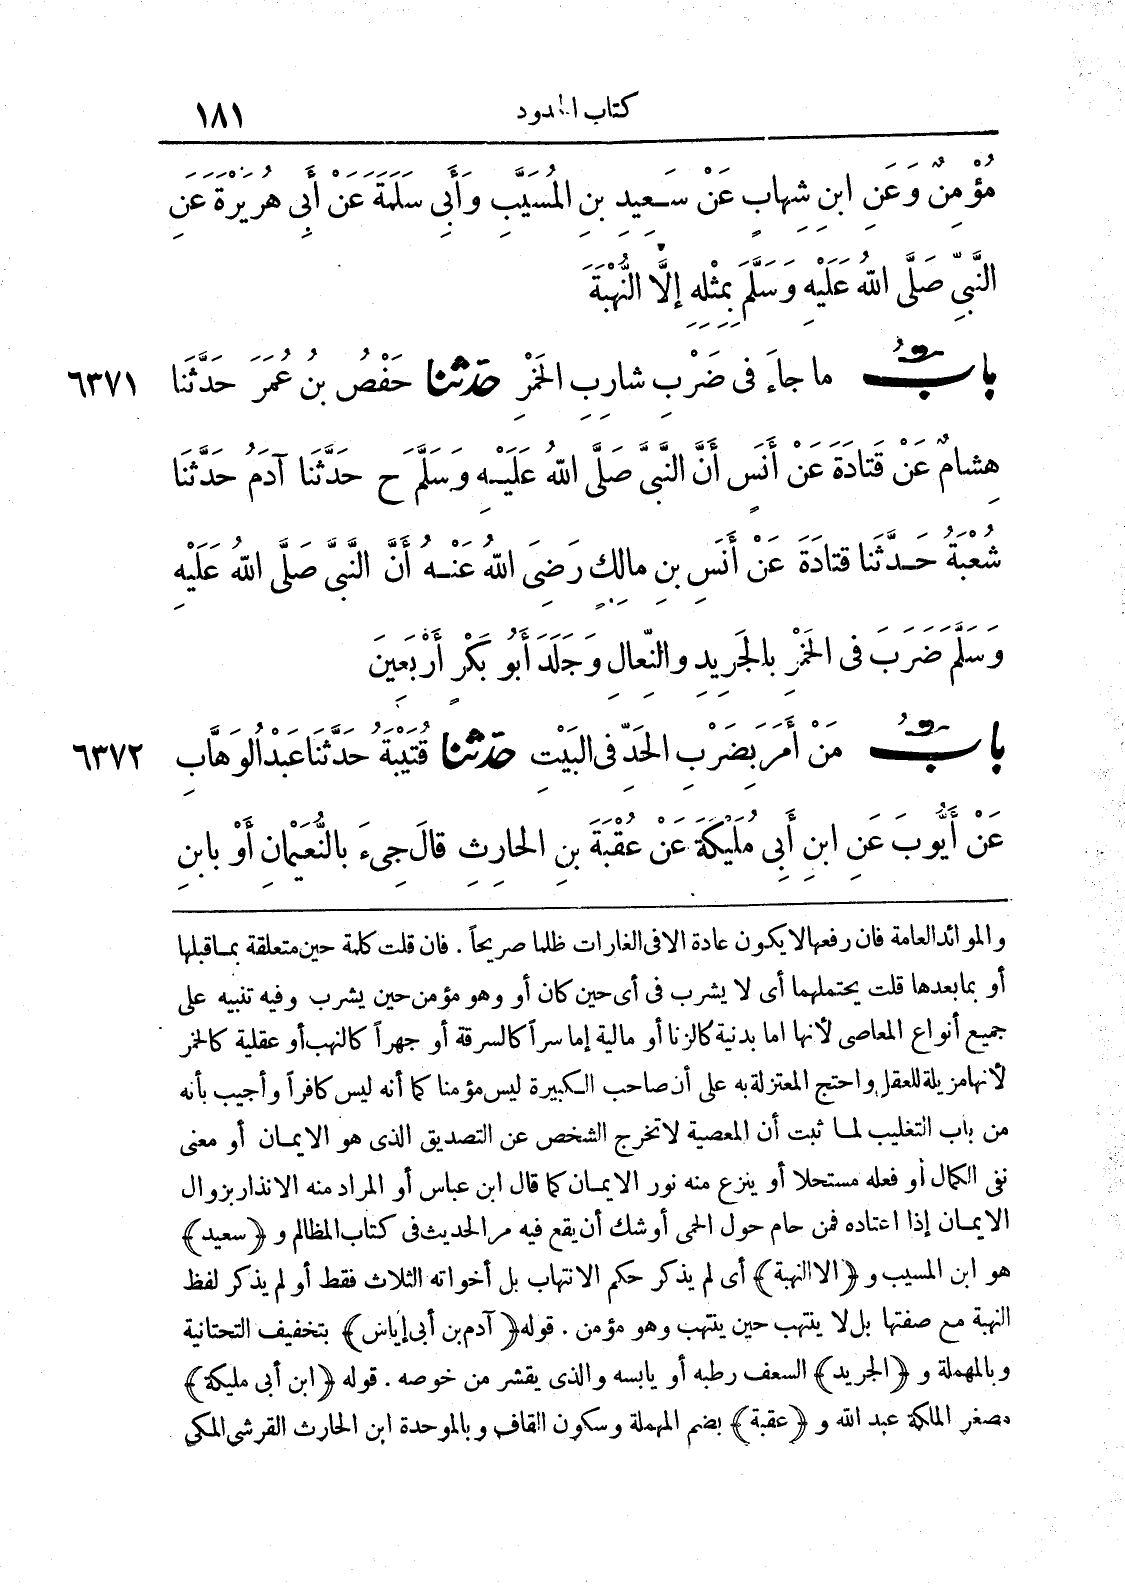 كتاب الحدود ١٨١
مُؤْمِنٌ وَعَنِ ابنِ شِهابٍ عَنْ سَعِيدِ بنِ المُسَيَّبِ وأَبِى سَلَمَةَ عَنْ أَبِى هُرَيْرَةَ عَنِ
النَّبِىِّ صَلَّى اللهُ عَلَيْهِ وَسَلَّمَ بِمِثْلِهِ إِلَّا النُّهْبَةَ
بابُ ما جاءَ فى ضَرْبِ شارِبِ الخَمْرِ حدثنا حَفْصُ بنُ عُمَرَ حَدَّثَنا ٦٣٧١
هِشامٌ عَنْ قَتادَةَ عَنْ أَنَسٍ أَنَّ النَّبِىَّ صَلَّى اللهُ عَلَيْهِ وَسَلَّمَ ح حَدَّثَنا آدَمُ حَدَّثَنا
شُعْبَةُ حَدَّثَنا قتادَةَ عَنْ أَنَسِ بنِ مالِكٍ رَضِىَ اللهُ عَنْهُ أَنَّ النَّبِىَّ صَلَّى اللهُ عَلَيْهِ
وَسَلَّمَ ضَرَبَ فى الخَمْرِ بالجَرِيدِ والنِّعالِ وَجَلَدَ أَبُو بَكْرٍ أَرْبَعِينَ
بابُ مَنْ أَمَرَ بِضَرْبِ الحَدِّ فى البَيْتِ حدثنا قُتَيْبَةُ حَدَّثَنا عَبْدُ الوَهَّابِ ٦٣٧٢
عَنْ أَيُّوبَ عَنِ ابنِ أَبِى مُلَيْكَةَ عَنْ عُقْبَةَ بنِ الحارِثِ قالَ جِىءَ بالنُّعَيْمانِ أَوْ بابنِ
والموائد العامة فان رفعها لا يكون عادة الا فى الغارات ظلما صريحاً . فان قلت كلمة حين متعلقة بما قبلها
أو بما بعدها قلت يحتملهما أى لا يشرب فى أى حين كان أو وهو مؤمن حين يشرب وفيه تنبيه على
جميع أنواع المعاصى لأنها اما بدنية كالزنا أو مالية إما سراً كالسرقة أو جهراً كالنهب أو عقلية كالخمر
لأنها مزيلة للعقل واحتج المعتزلة به على أن صاحب الكبيرة ليس مؤمنا كما أنه ليس كافراً وأجيب بأنه
من باب التغليب لما ثبت أن المعصية لا تخرج الشخص عن التصديق الذى هو الايمان أو معنى
نفى الكمال أو فعله مستحلا أو ينزع منه نور الايمان كما قال ابن عباس أو المراد منه الانذار بزوال
الايمان إذا اعتاده فمن حام حول الحمى أوشك أن يقع فيه مر الحديث فى كتاب المظالم و ﴿سعيد﴾
هو ابن المسيب و ﴿الا النهبة﴾ أى لم يذكر حكم الانتهاب بل أخواته الثلاث فقط أو لم يذكر لفظ
النهبة مع صفتها بل لا ينتهب حين ينتهب وهو مؤمن . قوله ﴿آدم بن أبى إياس﴾ بتخفيف التحتانية
وبالمهملة و ﴿الجريد﴾ السعف رطبه أو يابسه والذى يقشر من خوصه . قوله ﴿ابن أبى مليكة﴾
مصغر الملكة عبد الله و ﴿عقبة﴾ بضم المهملة وسكون القاف وبالموحدة ابن الحارث القرشى المكى